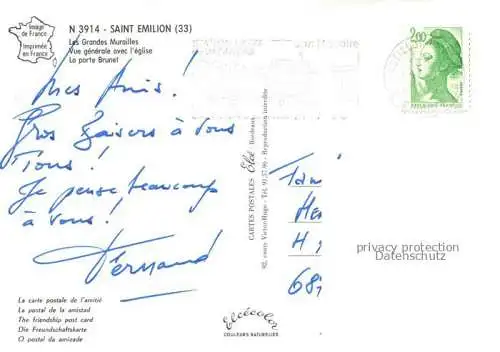 Image
de France
Imprimée
en France
N 3914 - SAINT EMILION (33)
Les Grandes Murailles
Vue générale avec l'église
La porte Brunet
2,00
Mes Amis !
Gros baisers à vous
Tous !
Je pense beaucoup
à vous !
Fernand
CARTES POSTALES Elcé Bordeaux
92, cours Victor-Hugo - Tél. 91.57.90 - Reproduction interdite
H
68
privacy protection
Datenschutz
La carte postale de l'amitié
La postal de la amistad
The friendship post card
Die Freundschaftskarte
O postal da amizade
Elcécolor
COULEURS NATURELLES